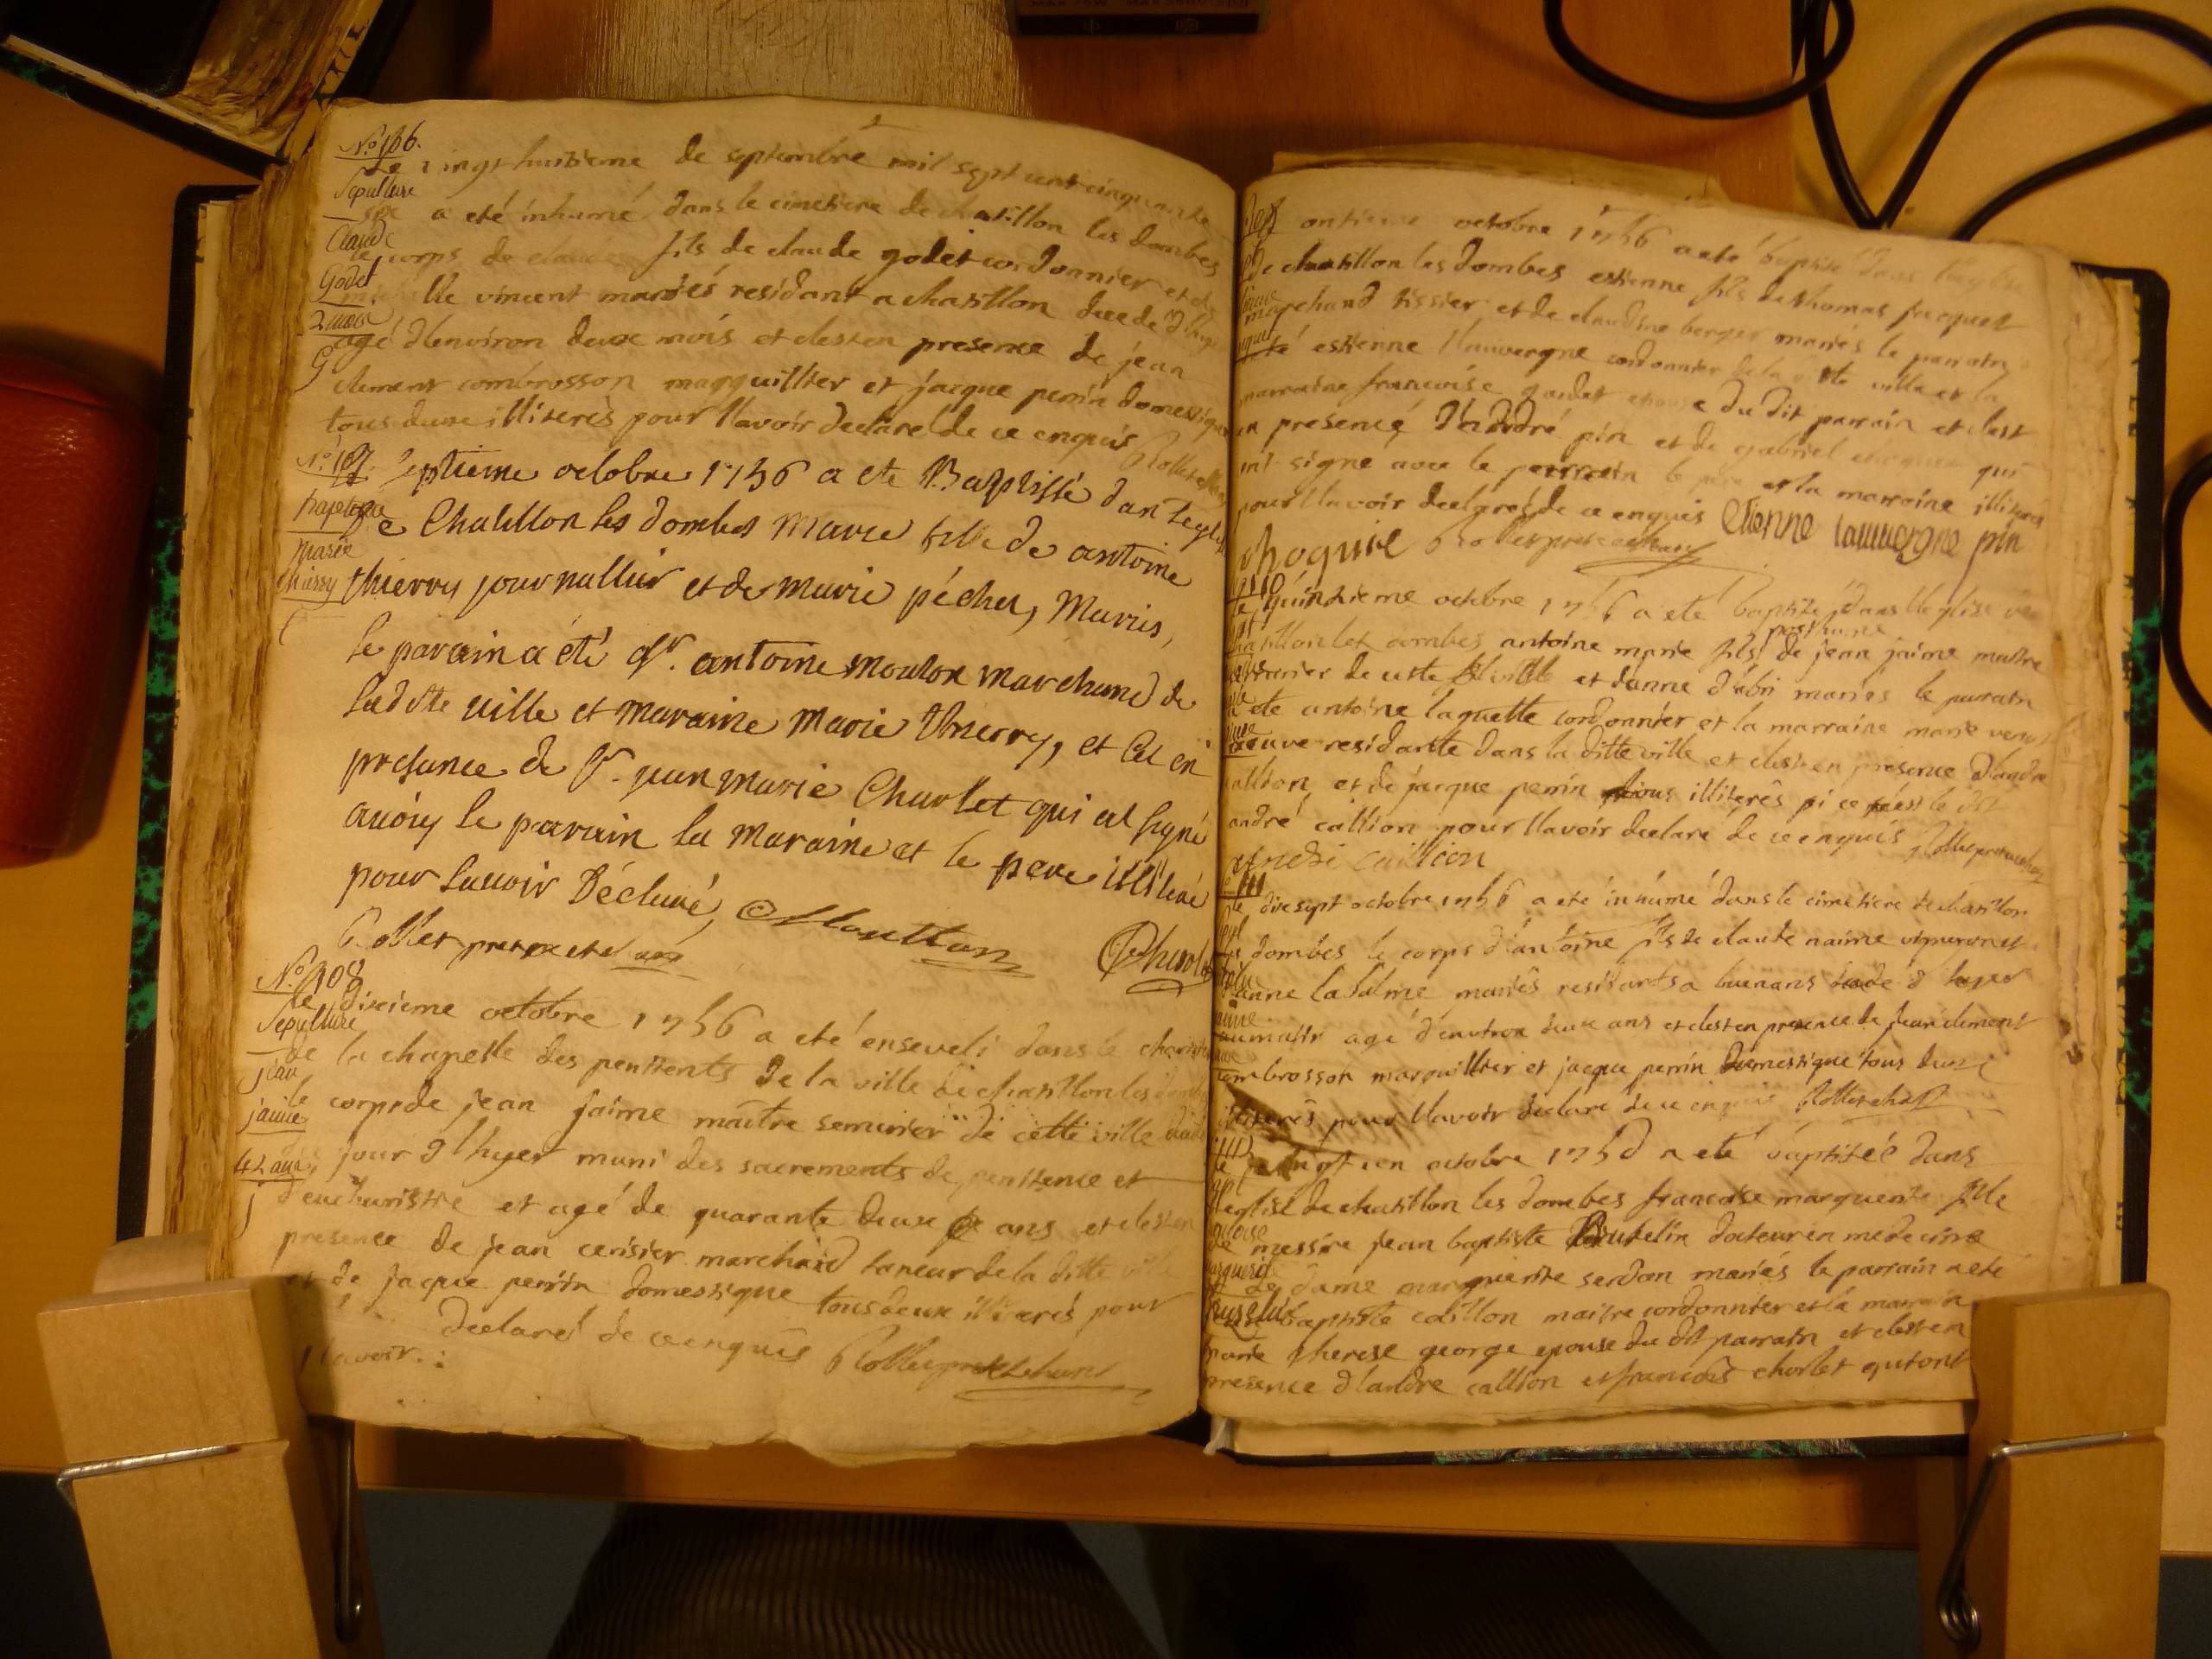 N.o 106.
Le vingt huitieme de septembre mil sept cent cinquante
Sepulture
six a eté inhumé dans le cimetiere de chatillon les dombes
Claude
le corps de claude fils de claude godet cordonnier et de
Godet
michelle vincent mariés residant a chatillon decedé d'hier
2 mois
agé d'environ deux mois et c'est en presence de jean
clement combrosson marguillier et jacque perrin domestique
tous deux illiterés pour l'avoir declaré de ce enquis
N.o 107.
Septieme octobre 1756 a ete Baptissé dan l'eglise
bapteme
De Chatillon les dombes Marie fille de antoine
Marie
thierry
thierry journallier et de Marie pécher, Mariés,
le parain a été Sr. antoine Mouton Marchand de
ladite ville et Maraine Marie thierry, et Cet en
presance de Sr. jean Marie Charlet qui at signé
avecq le parain la Maraine et le pere illiteré
pour lavoir Déclaré,
Rollet pretre et vic Moutton Charlet
N.o 108
le dixieme octobre 1756 a eté enseveli dans le charnier
Sepulture
de la chapelle des penitents de la ville de chatillon les dombes
jean
le corps de jean jaime maitre serrurier de cette ville
jaime
jour d'hyer muni des sacrements de penitence et
42 ans
d'eucharistie et agé de quarante deux ans et c'est en
presence de jean cerisier marchand taneur de la ditte ville
et de jacque perrin domestique tous deux illiterés pour
l'avoir declaré de ce enquis
109
onzieme octobre 1756 a eté baptisé dans l'eglise
de chatillon les dombes estienne fils de thomas jacquet
marchand tissier et de claudine berger mariés le parrain
a eté estienne l'auvergne cordonnier de la ditte ville et la
marraine francoise godet epouse du dit parrain et c'est
en presence d'andré pin et de gabriel choquie qui
ont signé avec le parrain le pere et la marraine illiterés
pour l'avoir declarés de ce enquis Etienne lauvergne pin
choquie
110
le quinzieme octobre 1756 a eté baptizé dans l'eglise de
chatillon les dombes antoine marie fils posthume de jean jaime maitre
serrurier de cette ville et d'anne d'abri mariés le parrain
a eté antoine laquette cordonnier et la marraine marie
veuve residante dans la ditte ville et c'est en presence d'andré
caillion, et de jacque perrin tous illiterés si ce n'est le dit
andré caillion pour l'avoir declaré de ce enquis
André Caillion
111
le dix sept octobre 1756 a eté inhumé dans le cimetiere de chatillon
les dombes le corps d'antoine fils de claude naime vigneron et
d'anne la salme mariés residants a buenans
au matin agé d'environ deux ans et c'est en presence de jean clement
combrosson marguillier et jacque perrin domestique tous deux
illiterés pour l'avoir declaré de ce enquis
112
le vingt un octobre 1756 a eté baptisée dans
l'eglise de chatillon les dombes francoise marguerite fille
de messire jean baptiste Butelin docteur en medecine
et de dame marguerite serdan mariés le parrain a eté
jean baptiste caillion maitre cordonnier et la marraine
marie therese george epouse du dit parrain et c'est en
presence d'andre caillion et francois chorlet qui ont